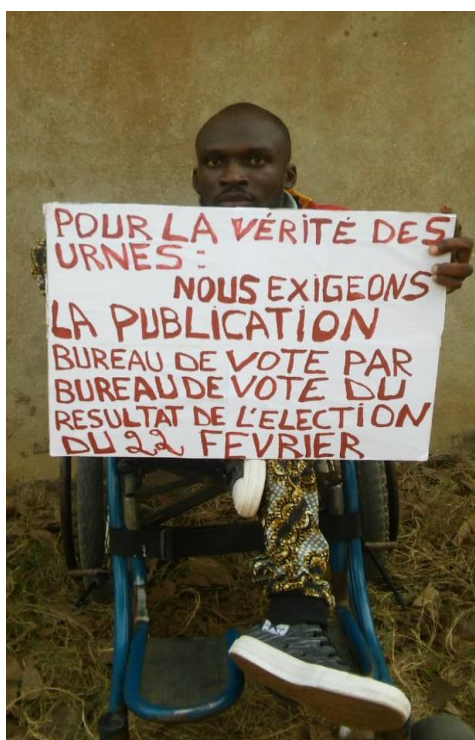 POUR LA VÉRITÉ DES
URNES :
NOUS EXIGEONS
LA PUBLICATION
BUREAU DE VOTE PAR
BUREAU DE VOTE DU
RESULTAT DE L'ELECTION
DU 22 FEVRIER